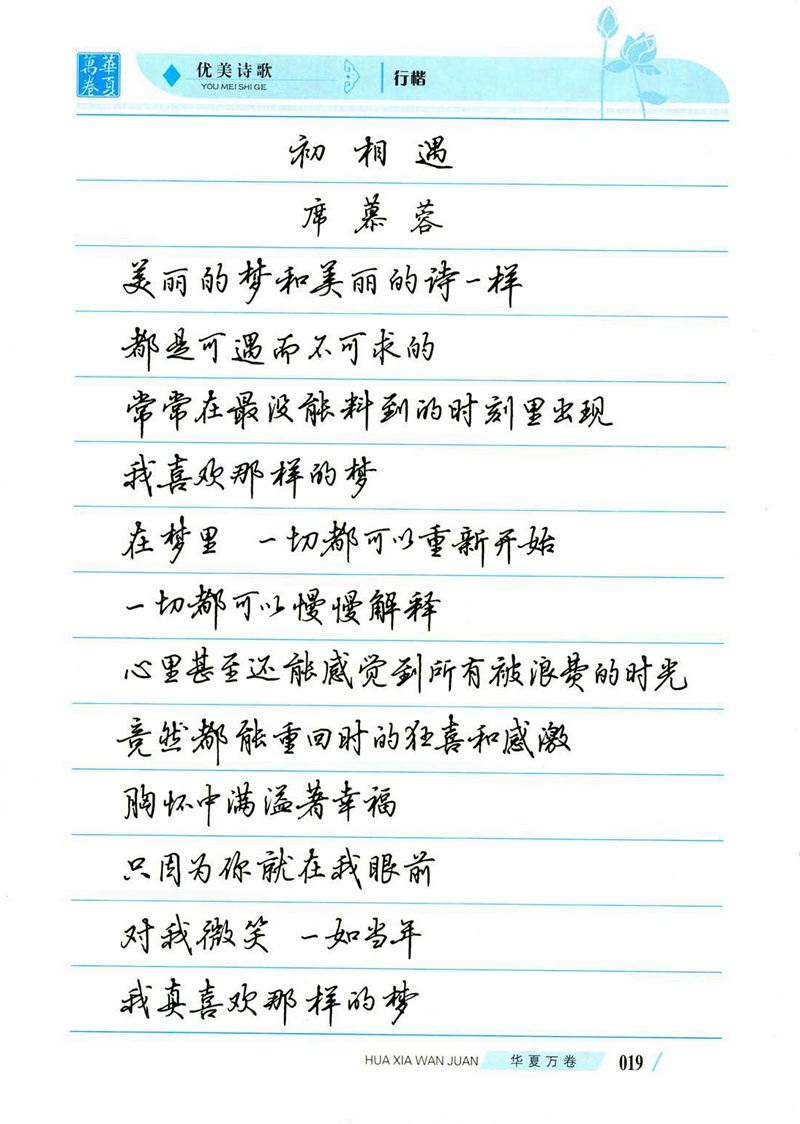 華夏萬卷
优美诗歌
YOU MEI SHI GE
行楷
初相遇
席慕蓉
美丽的梦和美丽的诗一样
都是可遇而不可求的
常常在最没能料到的时刻里出现
我喜欢那样的梦
在梦里 一切都可以重新开始
一切都可以慢慢解释
心里甚至还能感觉到所有被浪费的时光
竟然都能重回时的狂喜和感激
胸怀中满溢著幸福
只因为你就在我眼前
对我微笑 一如当年
我真喜欢那样的梦
HUA XIA WAN JUAN
华夏万卷
019